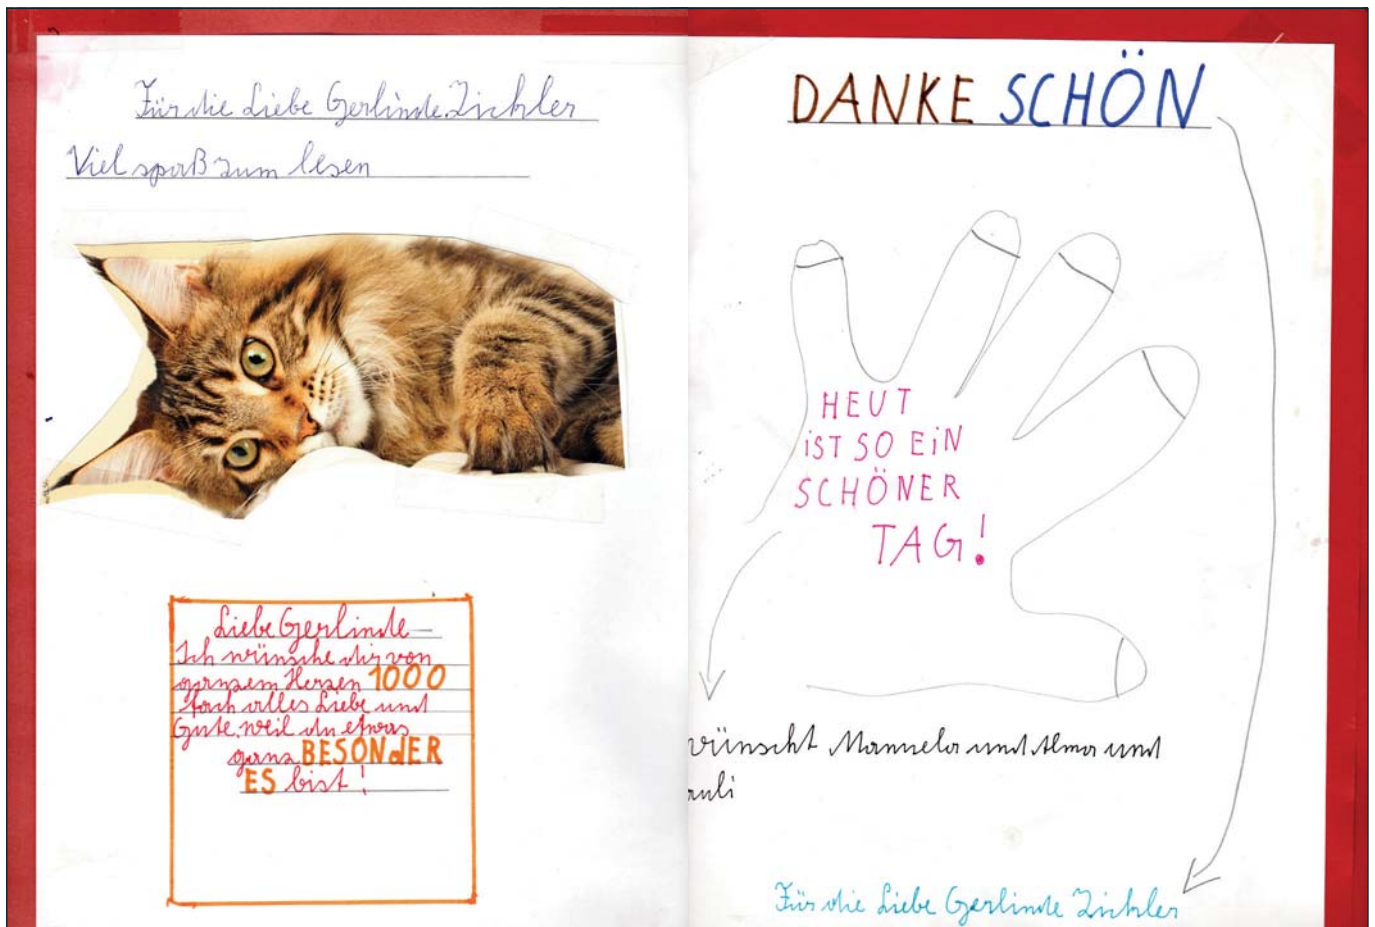 Für die Liebe Gerlinde Zichler
Viel spaß zum lesen
Liebe Gerlinde
Ich wünsche dir von
ganzem Herzen 1000
fach alles Liebe und
Gute, weil du etwas
ganz BESONdER
ES bist!
DANKE SCHÖN
HEUT
iST SO EiN
SCHÖNER
TAG!
wünscht Manuela und Alma und
auli
Für die Liebe Gerlinde Zichler